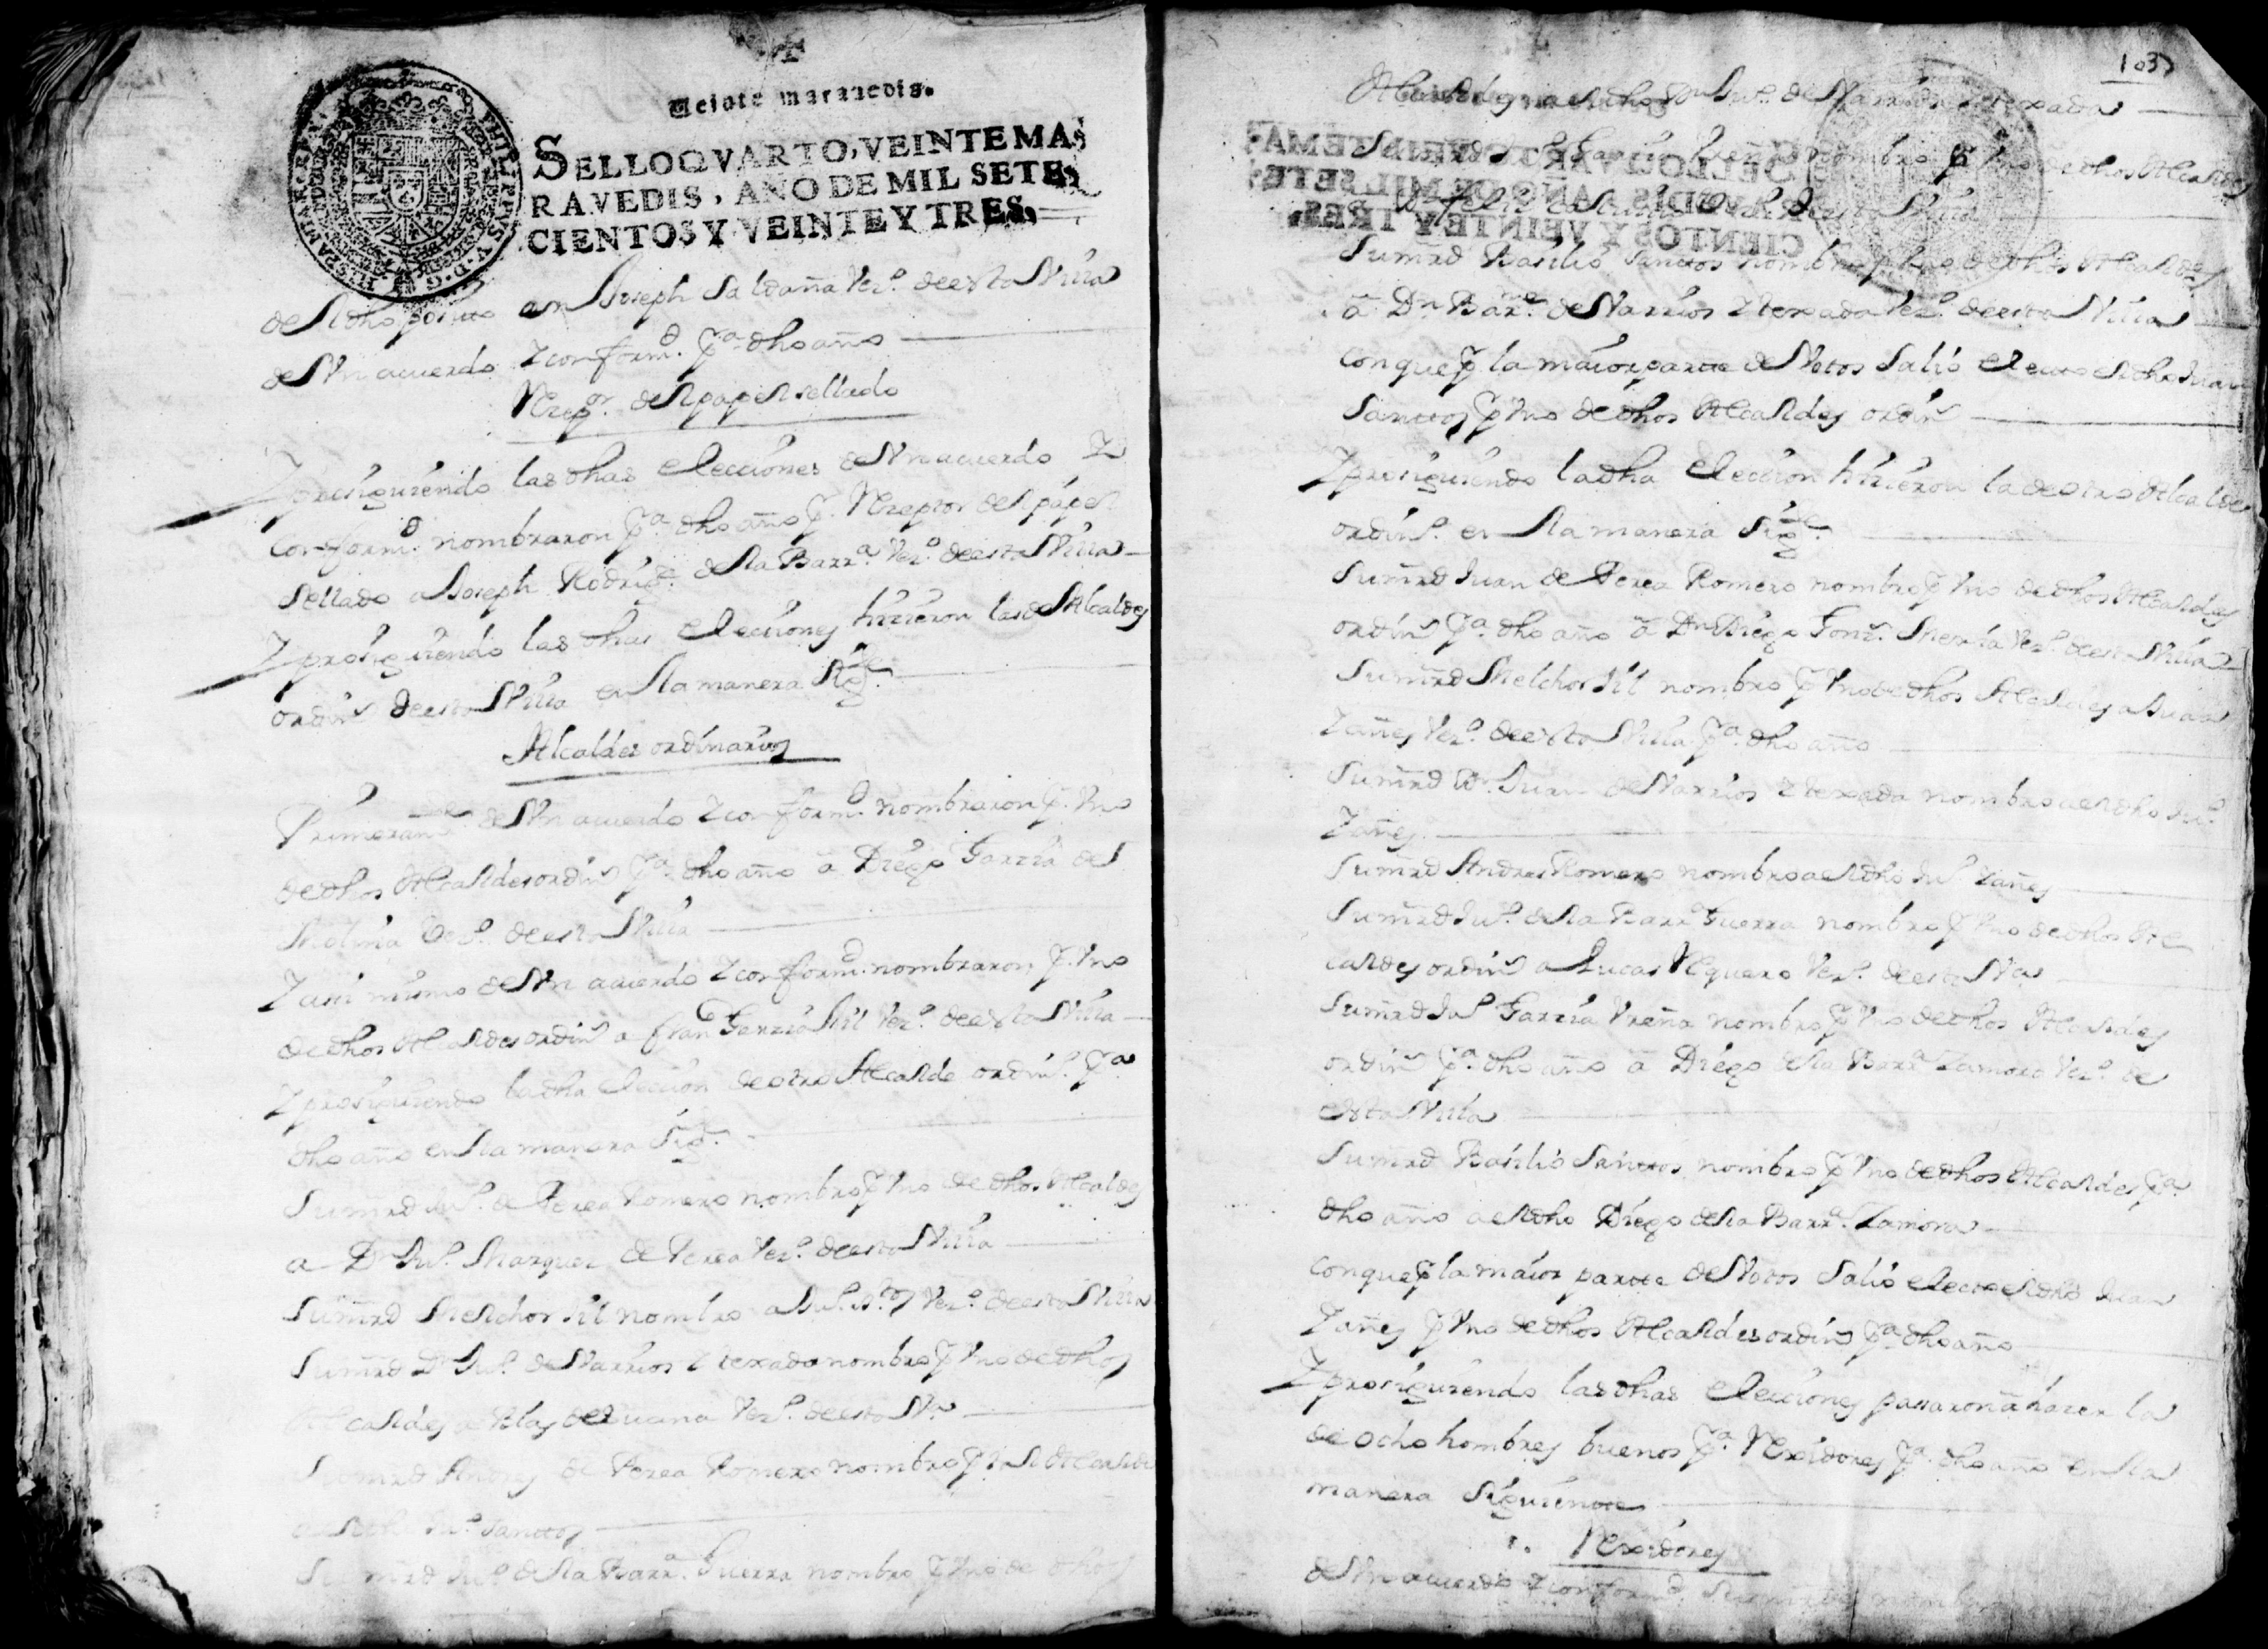 Veinte maravedis.
SELLO QVARTO, VEINTE MA-
RAVEDIS, AÑO DE MIL SETE-
CIENTOS Y VEINTE Y TRES.
del dho posito a Joseph Saldaña Vezº. de esta Villa
de Un acuerdo Y conformd. pa. dho año
Rezepor. del papel sellado
Y prosiguiendo las dhas elecciones de Un acuerdo Y
Conformd. nombraron pa. dho año p. Rezeptor del papel
Sellado a Joseph Rodrigz. de la Barra. Vezº. de esta Villa
Y prosiguiendo las dhas elecciones hizieron las de Alcaldes
ordins de esta Villa en la manera Sige.
Alcaldes ordinarios
Primeramte. de Un acuerdo Y conformd. nombraron p. Uno
de dhos Alcaldes ordins pa. dho año a Diego Garzia de
Molina Vezº. de esta Villa
Y asi mismo de Un acuerdo Y conformd. nombraron p. Uno
de dhos Alcaldes ordins a franco Garzia Gil Vezº. de esta Villa
Y prosiguiendo la dha eleccion de otro Alcalde ordino. pa.
dho año en la manera Sige.
Su mrd Juº. de Perea Romero nombro p Uno de dhos Alcaldes
a Dn Juº. Marquez de Perea Vezº. de esta Villa
Su mrd Melchor Gil nombro a Juº. Stos Vezº. de esta Villa
Su mrd Dn Juº. de Barrios Y texada nombro p Uno de dhos
Alcaldes a Blas de Vezº. de esta Va
Su mrd Andres de Perea Romero nombro p tal Alcalde
a el dho Juº. Santtos
Su mrd Juº. de la Barra. Guerra nombro p Uno de dhos
103
Alcaldes a el dho Dn Juº. de Barrios Y texada
Su mrd Juº Garzia Ureña nombro p Uno de dhos Alcaldes
Su mrd Basilio Santtos nombro p Uno de dhos Alcaldes
a Dn Barme. de Barrios Y texada Vezº. de esta Villa
Con que p la maior parte de Votos Salio electo el dho Juan
Santtos p Uno de dhos Alcaldes ordins
Y prosiguiendo la dha eleccion hizieron la de otro Alcalde
ordino. en la manera Sige.
Su mrd Juan de Perea Romero nombro p Uno de dhos Alcaldes
ordins pa. dho año a Dn Diego Gonz. Mexia Vezº. de esta Villa
Su mrd Melchor Gil nombro p Uno de dhos Alcaldes a Juan
Yañes Vezº. de esta Villa pa. dho año
Su mrd Dn. Juan de Barrios Y texada nombro a el dho Juº.
Yañes
Su mrd Andres Romero nombro a el dho Juº. Yañes
Su mrd Juº. de la Barra Guerra nombro p Uno de dhos Al
caldes ordins a Lucas Requero Vezº. de esta Va
Su mrd Juº Garzia Ureña nombro p Uno de dhos Alcaldes
ordins pa. dho año a Diego de la Barra Zamora Vezº. de
esta Villa
Su mrd Basilio Santtos nombro p Uno de dhos Alcaldes pa.
dho año a el dho Diego de la Barra. Zamora
Con que p la maior partte de Votos Salio electo el dho Juan
Yañes p Uno de dhos Alcaldes ordins pa. dho año
Y prosiguiendo las dhas elecciones pasaron a hazer la
de ocho hombres buenos pa. Rexidores pa. dho año en la
manera Siguiente
Rexidores
de Un acuerdo Y conformd. Sus mrdes nombraron